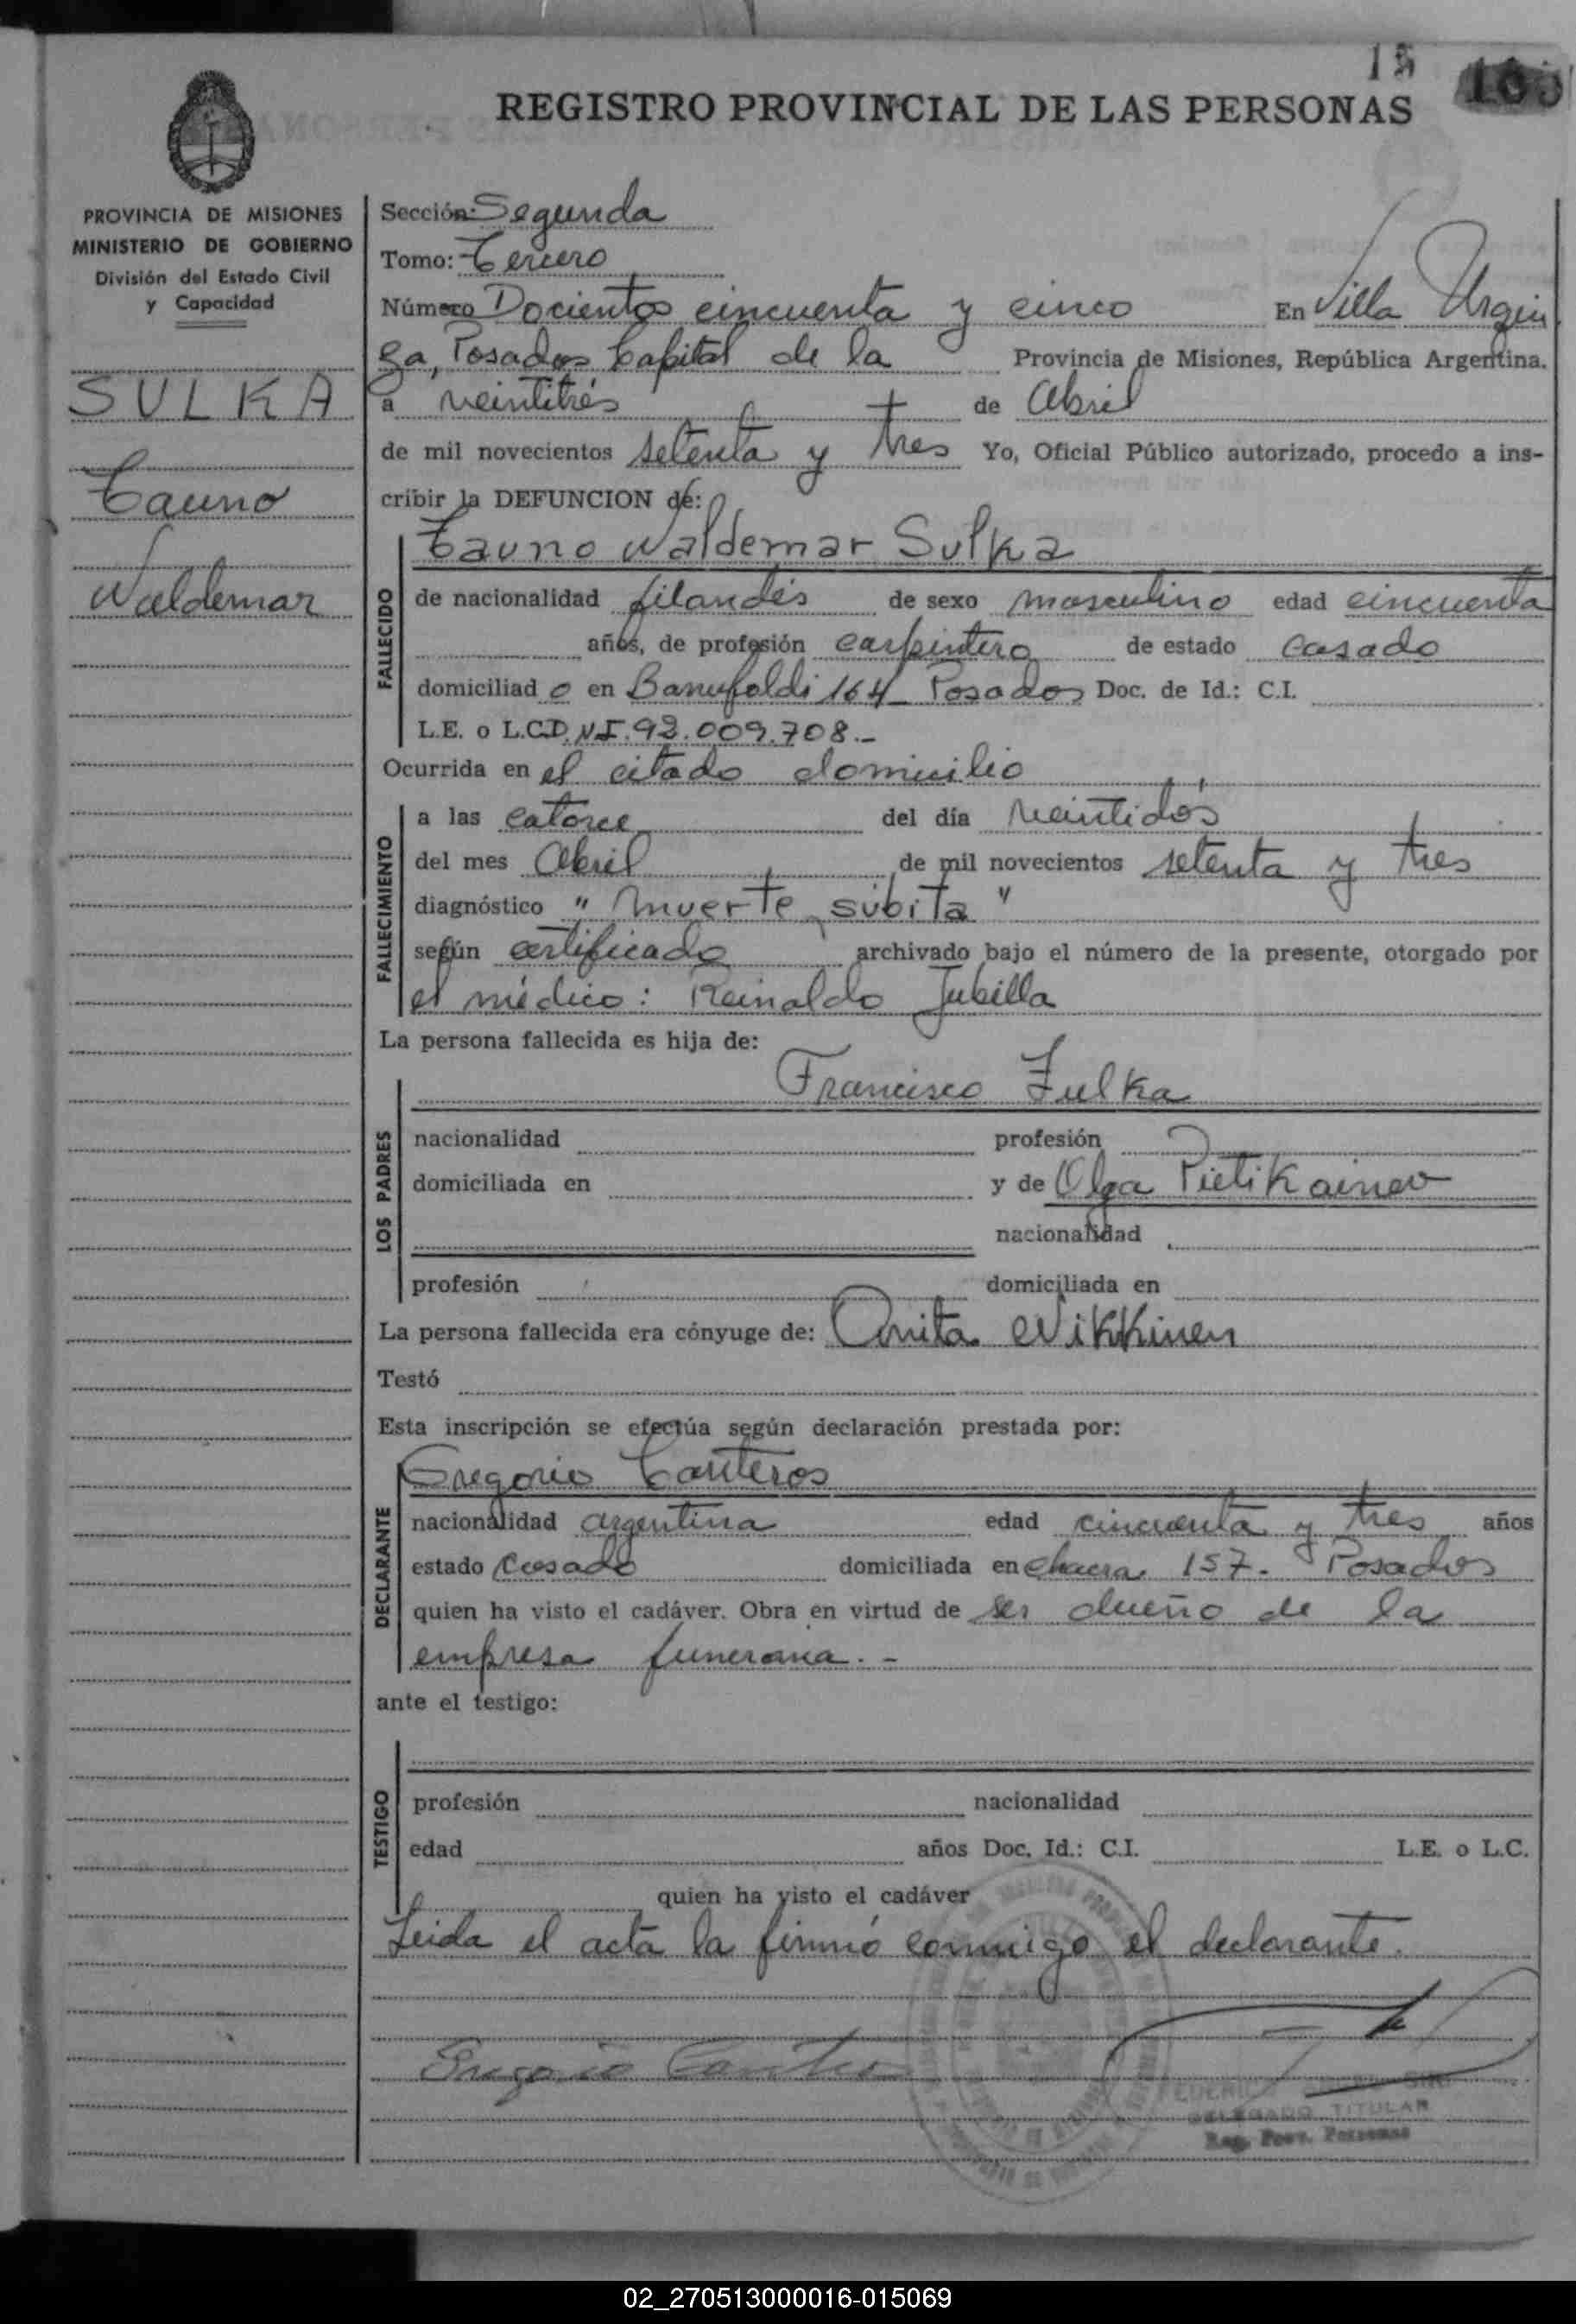 15
REGISTRO PROVINCIAL DE LAS PERSONAS
PROVINCIA DE MISIONES
MINISTERIO DE GOBIERNO
División del Estado Civil
y Capacidad
SULKA
Tauno
Waldemar
Sección: Segunda
Tomo: Tercero
Número Docientos cincuenta y cinco En Villa Urqui
za, Posadas Capital de la Provincia de Misiones, República Argentina.
a veintitrés de Abril
de mil novecientos setenta y tres Yo, Oficial Público autorizado, procedo a ins-
cribir la DEFUNCION de:
FALLECIDO
Tauno Waldemar Sulka
de nacionalidad filandés de sexo masculino edad cincuenta
años, de profesión carpintero de estado casado
domiciliad o en 164 Posadas Doc. de Id.: C.I.
L.E. o L.C. D.N.I. 92.009.708.-
Ocurrida en el citado domicilio
FALLECIMIENTO
a las catorce del día veintidós
del mes Abril de mil novecientos setenta y tres
diagnóstico " Muerte súbita "
según certificado archivado bajo el número de la presente, otorgado por
el médico: Reinaldo Jubilla
La persona fallecida es hija de:
LOS PADRES
Francisco Zulka
nacionalidad profesión
domiciliada en y de Olga Pietikainen
nacionalidad
profesión domiciliada en
La persona fallecida era cónyuge de: Anita Nikkinen
Testó
Esta inscripción se efectúa según declaración prestada por:
DECLARANTE
Gregorio Canteros
nacionalidad argentina edad cincuenta y tres años
estado casado domiciliada en chacra 157. Posadas
quien ha visto el cadáver. Obra en virtud de ser dueño de la
empresa funeraria.-
ante el testigo:
TESTIGO
profesión nacionalidad
edad años Doc. Id.: C.I. L.E. o L.C.
quien ha visto el cadáver
Leida el acta la firmó conmigo el declarante.
Gregorio Canteros
FEDERICO
DELEGADO TITULAR
Reg. Prov. Personas
02_270513000016-015069